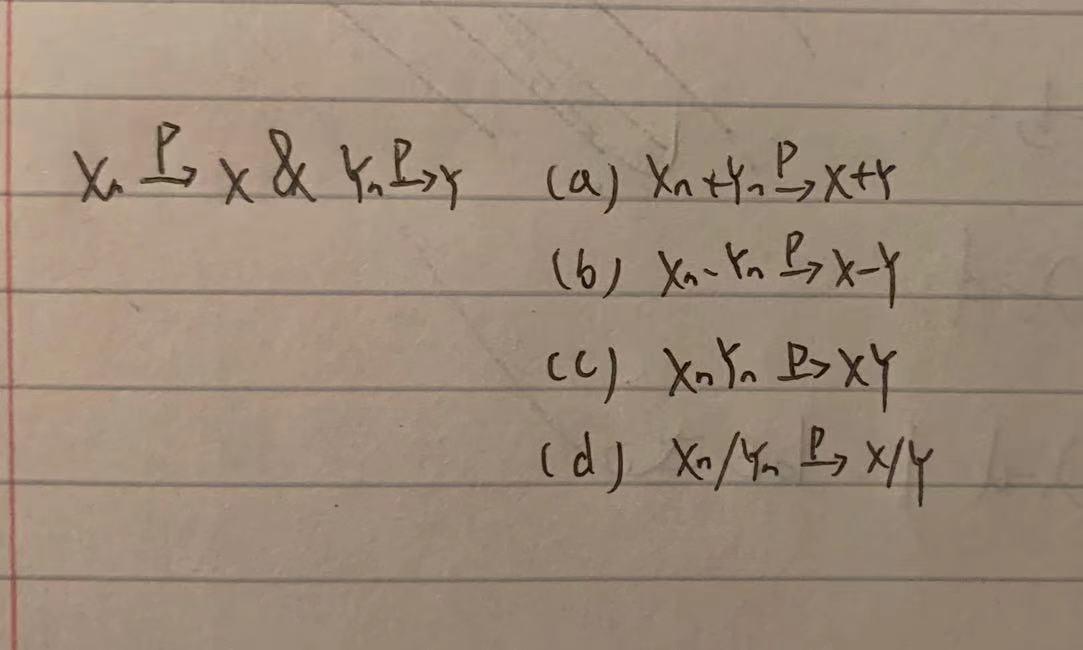 Xn P→ X & Yn P→ Y (a) Xn+Yn P→ X+Y
(b) Xn-Yn P→ X-Y
(c) XnYn P→ XY
(d) Xn/Yn P→ X/Y